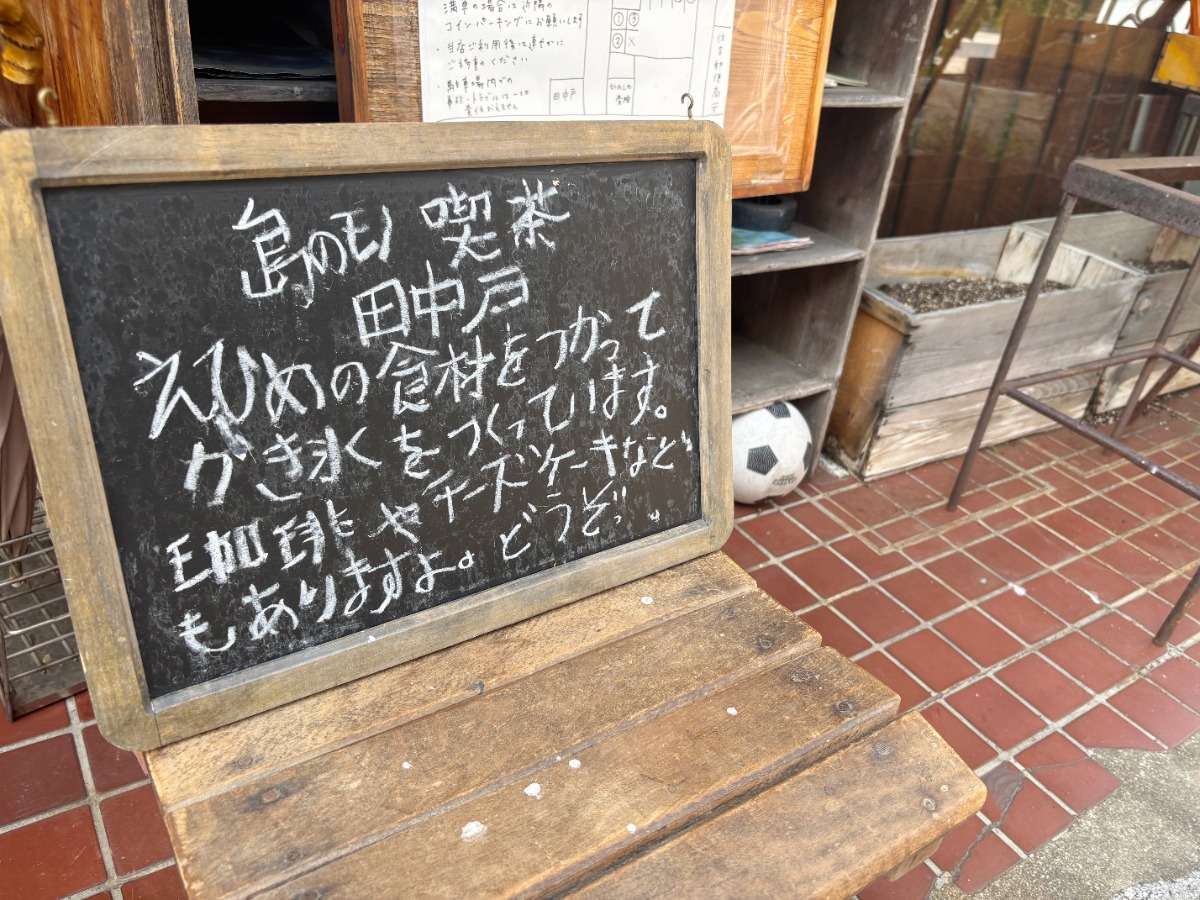 満車の場合は近隣の
コインパーキングにお願いします
・当店ご利用後は速やかに
ご移動ください
・駐車場内での
事故・トラブルは一切
責任がもえません
① ③
② X
田中戸
島のモノ 喫茶
田中戸
えひめの食材をつかって
かき氷をつくっています。
珈琲やチーズケーキなど
もありますよ。どうぞ。